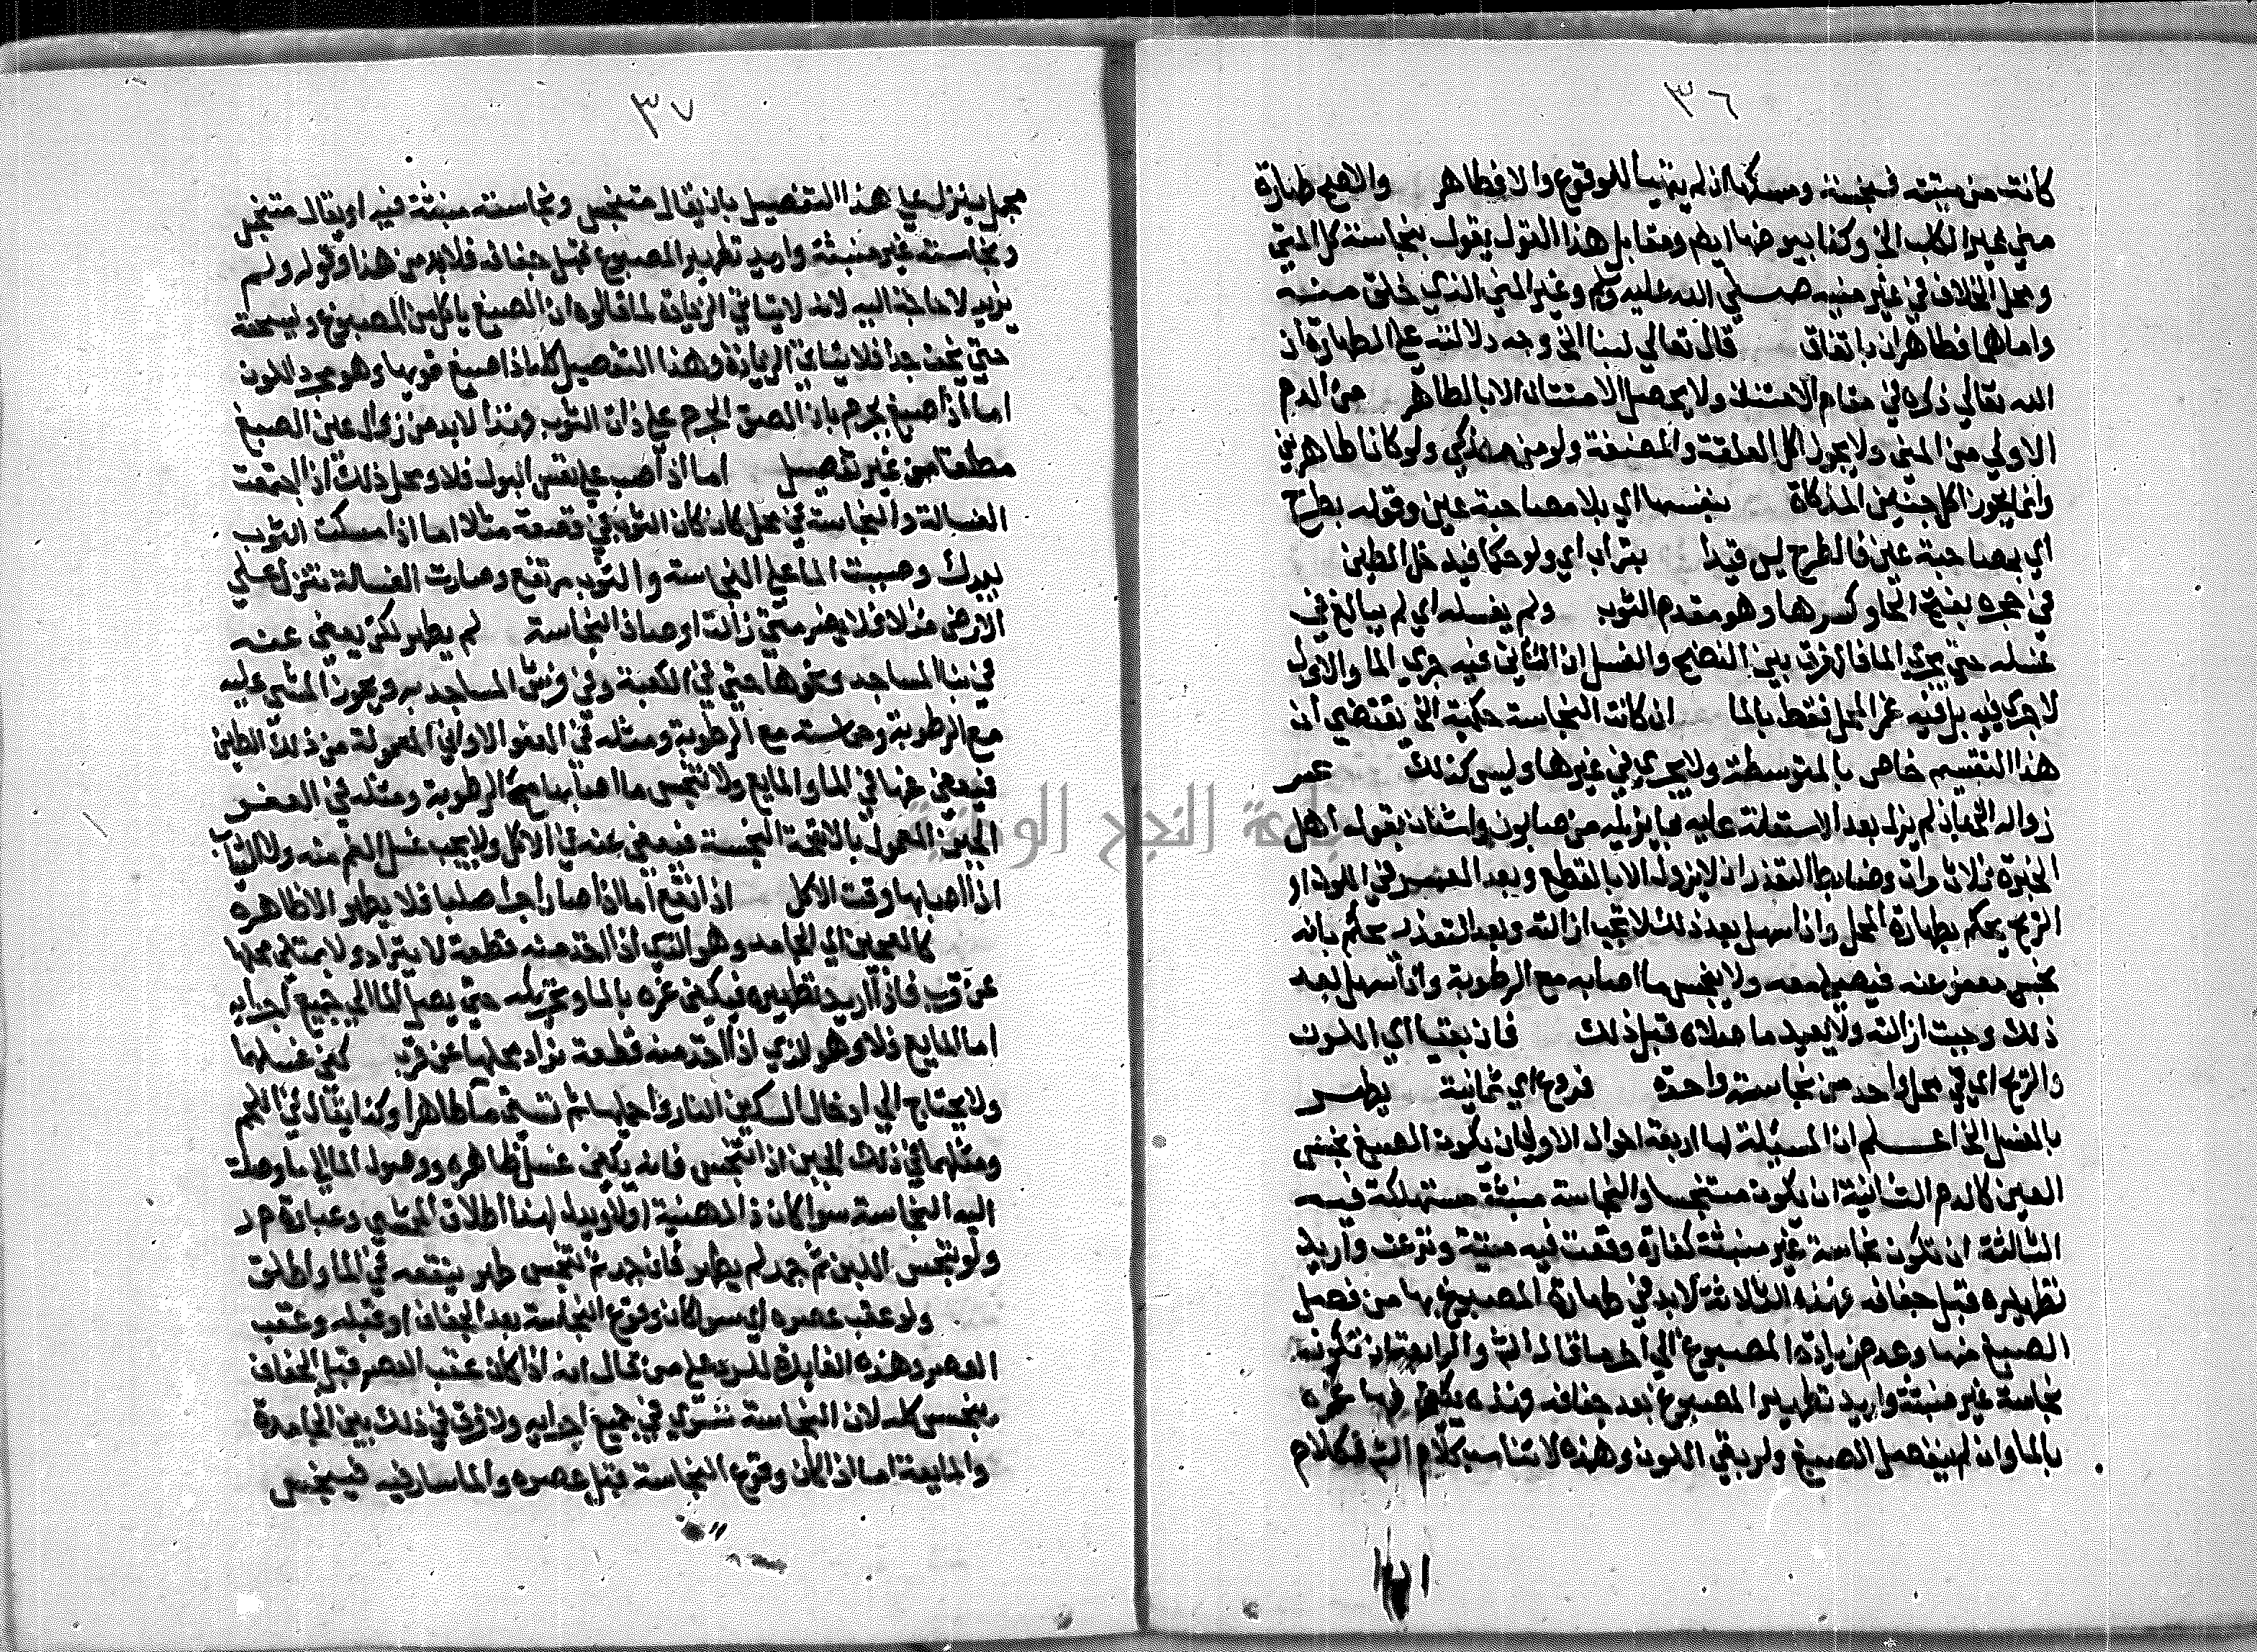 ٣٦
كانت من ميتته فنجسة ومسكها ان لم يتهيأ للوقوع والا فطاهر والاصح طهارة
مني غير الكلب الخ وكذا بيوضها ايضا ومقابل هذا القول يقول بنجاسة كل المني
ومحل الخلاف في غير منيه صلي الله عليه وسلم وغير المني الذي خلق منه
واما هما فطاهران باتفاق قال تعالي لبنا الخ وجه دلالته علي الطهارة ان
الله تعالي ذكره في مقام الامتنان ولا يحصل الامتنان الا بالطاهر من الدم
الاولي من المني ولا يجوز اكل العلقة والمضغة ولو من مذكي ولو كانا طاهرين
وانما يجوز اكل جنين المذكاة بنفسها اي بلا مصاحبة عين وقوله بطرح
اي بمصاحبة عين فالطرح ليس قيدا بتراب اي ولو حكما فيدخل الطين
في حجره بفتح الحا وكسرها وهو مقدم الثوب ولم يغسله اي لم يبالغ في
غسله حتي يجري الما فالفرق بين النضح والغسل ان الثاني فيه جري الما والاول
لا جري فيه بل فيه غمر المحل فقط بالما ان كانت النجاسة حكمية الخ يقتضي ان
هذا التقسيم خاص بالمتوسطة ولا يجري في غيرها وليس كذلك عسر
زواله الخ بان لم يزل بعد الاستعانة عليه بما يزيله من صابون واشنان بقول اهل
الخبرة ثلاث مرات وضابط التعذر ان لا يزول الا بالقطع وبعد العسر في اللون او
الريح يحكم بطهارة المحل واذا سهل بعد ذلك لا تجب ازالته وبعد التعذر يحكم بانه
نجس معفو عنه فيصلي معه ولا ينجس ما اصابه مع الرطوبة واذا سهل بعد
ذلك وجبت ازالته ولا يعيد ما صلاه قبل ذلك فان بقيا اي اللون
والريح اي في محل واحد من نجاسة واحدة فروع اي ثمانية يطهر
بالغسل الخ اعلم ان المسئلة لها اربعة احوال الاولي ان يكون الصبغ نجس
العين كالدم الثانية ان يكون متنجسا والنجاسة منبثة مستهلكة فيه
الثالثة ان تكون نجاسة غير منبثة كفارة وقعت فيه ميتة ونزعت واريد
تطهيره قبل جفافه فهذه الثلاثة لا بد في طهارة المصبوغ بها من فصل
الصبغ منها وعدم زيادة المصبوغ الي اخر ما قال الش والرابعة ان تكون
نجاسة غير منبثة واريد تطهير المصبوغ بعد جفافه فهذه يكفي فيها غمره
بالما وان لم ينفصل الصبغ ولو بقي اللون وهذه لا تناسب كلام الش فكلام
٣٧
مجمل ينزل علي هذا التفصيل بان يقال متنجس ونجاسته منبثة فيه او يقال متنجس
ونجاسته غير منبثة واريد تطهير المصبوغ قبل جفافه فلا بد من هذا وقوله ولم
يزيد لا حاجة اليه لانه لا يتاتي الزيادة لما قالوه ان الصبغ ياكل من المصبوغ ويسحته
حتي يخف جدا فلا يتاتي الزيادة وهذا التفصيل كله اذا صبغ فوبها وهو مجرد اللون
اما اذا صبغ بجرم بان الصق الجرم علي ذات الثوب فهذا لا بد من زوال عين الصبغ
مطلقا من غير تفصيل اما اذا صب علي نفس البول فلا ومحل ذلك اذا اجتمعت
الغسالة والنجاسة في محل كان كان الثوب في قصعة مثلا اما اذا امسكت الثوب
بيدك وصببت الما علي النجاسة والثوب مرتفع وصارت الغسالة تنزل علي
الارض مثلا فلا يضر متي زالت اوصاف النجاسة لم يطهر لكن يعفي عنه
في بنا المساجد ونحوها حتي في الكعبة وفي فرش المساجد به ويجوز المشي عليه
مع الرطوبة ومماسته مع الرطوبة ومثله في العفو الاواني المعمولة من ذلك الطين
فيعفي عنها في الما والمايع ولا تنجس ما اصابها مع الرطوبة ومثله في العفو
الجبن المعمول بالانفحة النجسة فيعفي عنه في الاكل ولا يجب غسل الفم منه ولا الثياب
اذا اصابها وقت الاكل اذا نقع اما اذا صار اجرا صلبا فلا يطهر الا ظاهره
كالعجين اي الجامد وهو الذي اذا اخذ منه قطعة لا يتراد ولا يمتلئ محلها
عن قرب فاذا اريد تطهيره فيكفي غمره بالما وتحريكه حتي يصل الما الي جميع اجزايه
اما المايع فلا وهو الذي اذا اخذ منه قطعة يتراد محلها عن قرب كفي غسلها
ولا يحتاج الي ادخال السكين النار واحمايها ثم تسقي ما طاهرا وكذا يقال في اللحم
ومثلهما في ذلك الجبن اذا تنجس فانه يكفي غسل ظاهره ووصول الما الي ما وصلت
اليه النجاسة سوا كان ذا دهنية او لا ويدل لهذا اطلاق المحشي وعبارة م ر
ولو تنجس اللبن ثم جمد لم يطهر فان جمد ثم تنجس طهر بنقعه في الما واطلق
ولو عقب عصره اي سوا كان وقوع النجاسة بعد الجفاف او قبله وعقب
العصر وهذه الفايدة للرد علي من قال انه اذا كان عقب العصر قبل الجفاف
ينجس كله لان النجاسة تسري في جميع اجزايه ولا فرق في ذلك بين الجامدة
والمايعة اما اذا كان وقوع النجاسة قبل عصره والما سار فيه فينجس
جامعة النجاح الوطنية